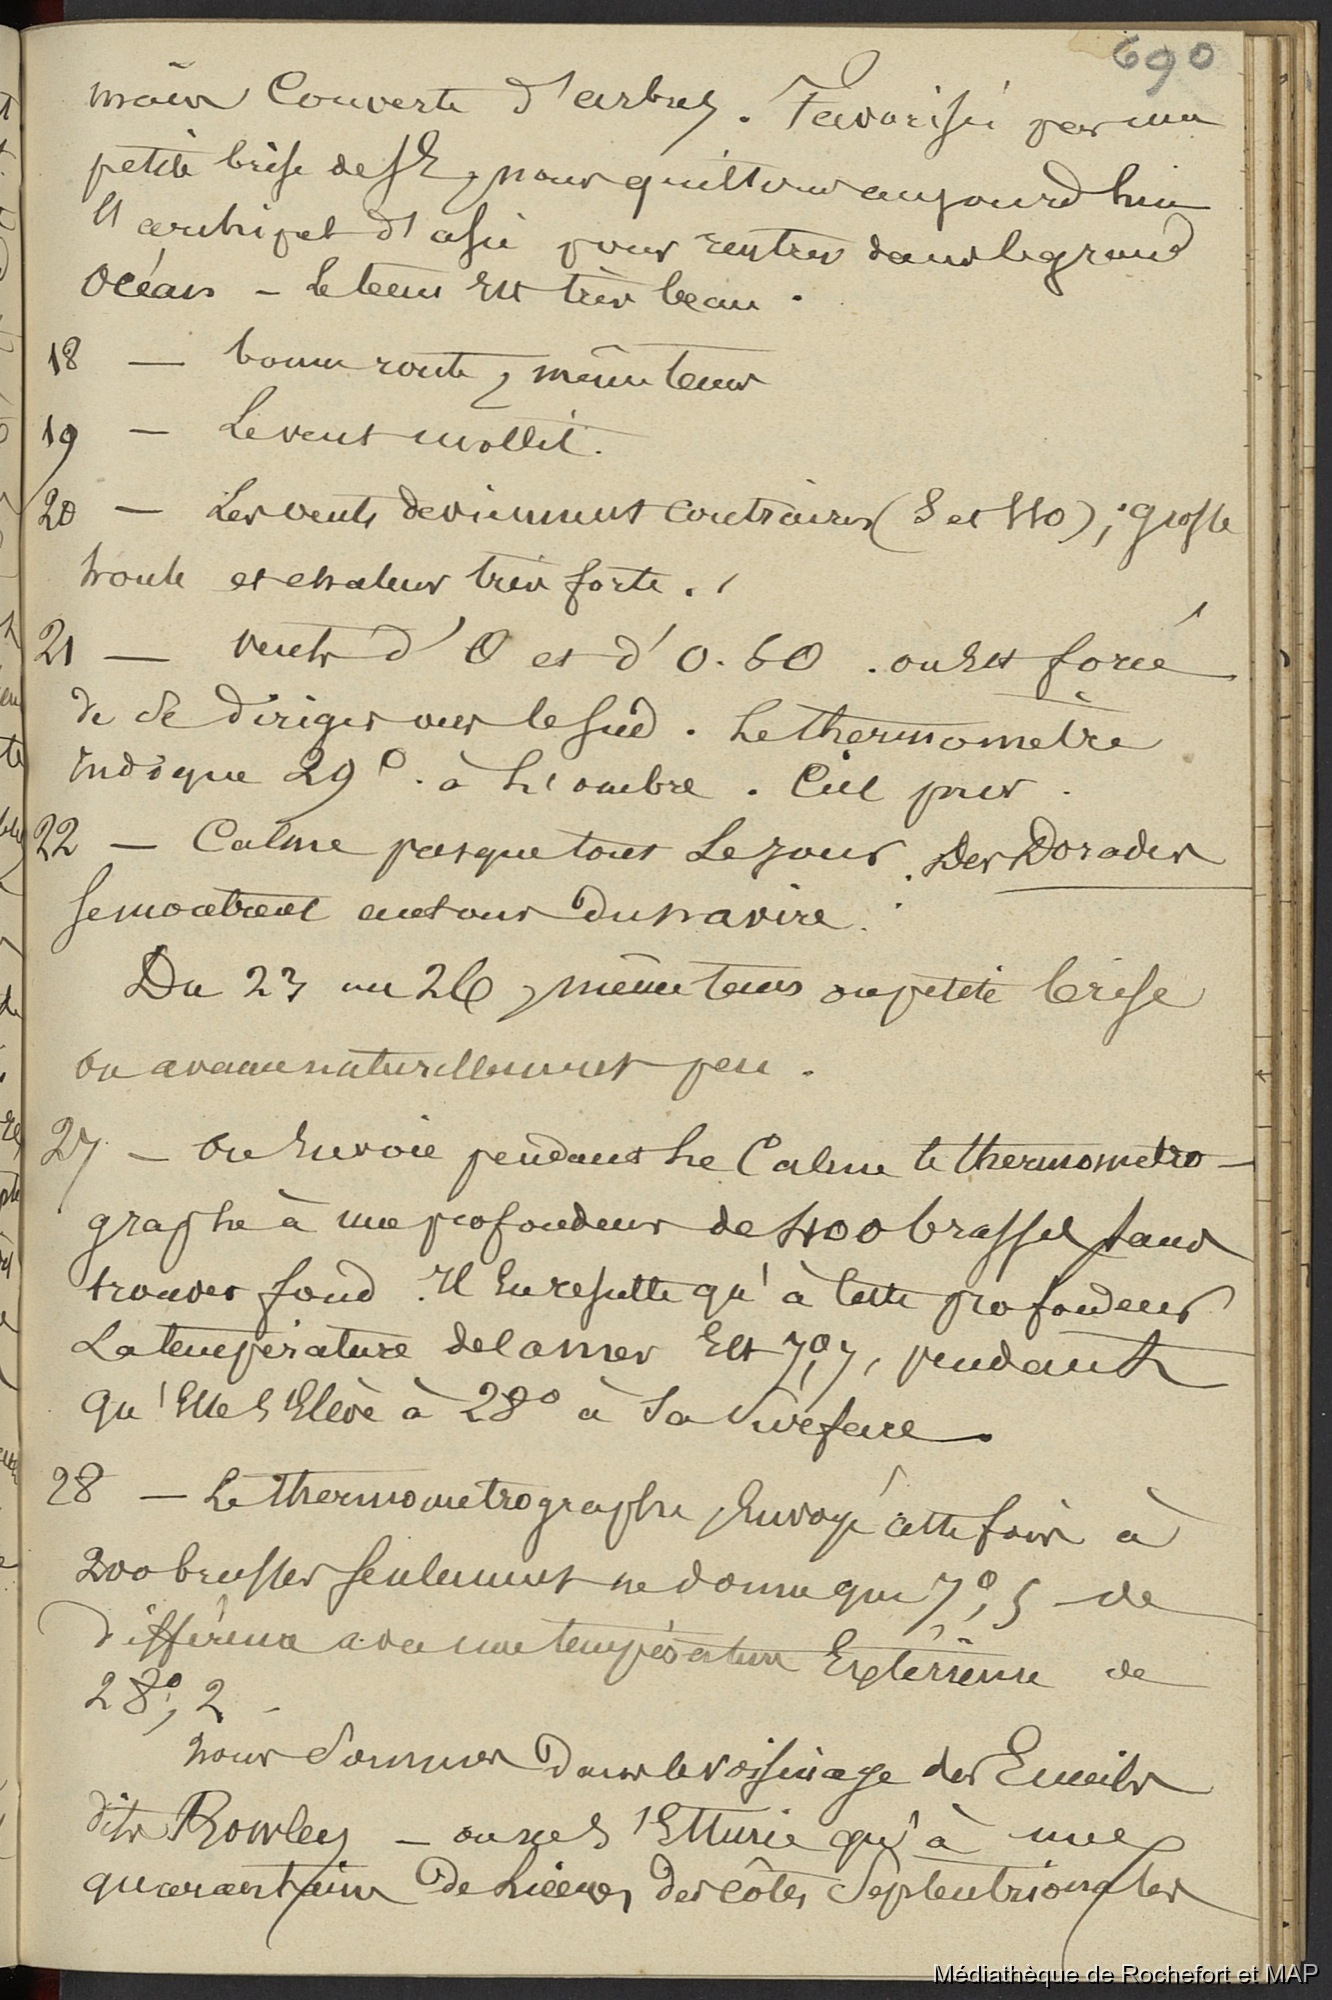 690
mais couverte d'arbres. Favorisé par une
petite brise de SE, nous quittons aujourd'hui
l'archipel d'asie pour rentrer dans le grand
océan – Le tems Est très beau.
18 — bonne route, même tems
19 — Le vent mollit.
20 — Les vents deviennent contraires (S et SSO); grosse
houle et chaleur très forte.
21 — vents d'O et d'O.SO. on Est forcé
de se diriger vers le sud. Le thermomètre
indique 29° à l'ombre. Ciel pur.
22 — Calme presque tout Le jour. Des Dorades
se montrent autour du navire.
Du 23 au 26, même tems ou petite brise
on avance naturellement peu.
27 — On Envoie pendant Le Calme le thermométro-
graphe à une profondeur de 400 brasses sans
trouver fond. Il En résulte qu'à cette profondeur
La température de la mer Est 7°,7, pendant
qu'Elle s'Elève à 28° à Sa Surface.
28 — Le thermométrographe Envoyé cette fois à
200 brasses seulement ne donne que 7°,5 de
différence avec une température Extérieure de
28°,2
Nous Sommes Dans le voisinage des Ecueils
dits Rowley – on ne s'Estime qu'à une
quarantaine De Lieues Des côtes Septentrionales
Médiathèque de Rochefort et MAP